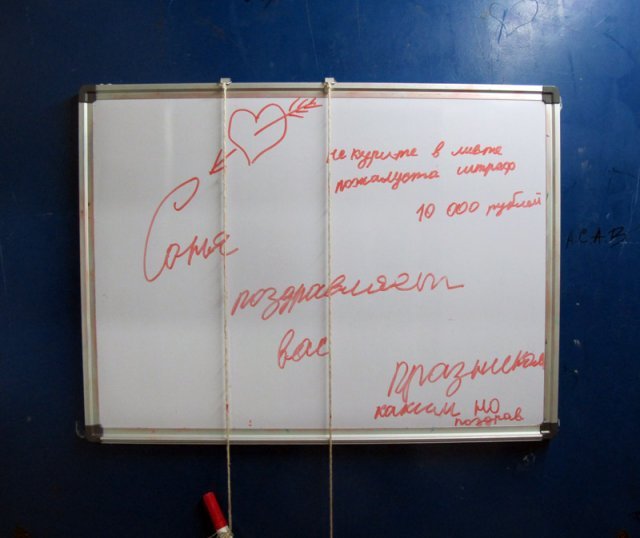 не курите в лифте
пожалуста штраф
10 000 рублей
A.C.A.B
Соня
поздравляет
вас
празником
каким но
поздрав